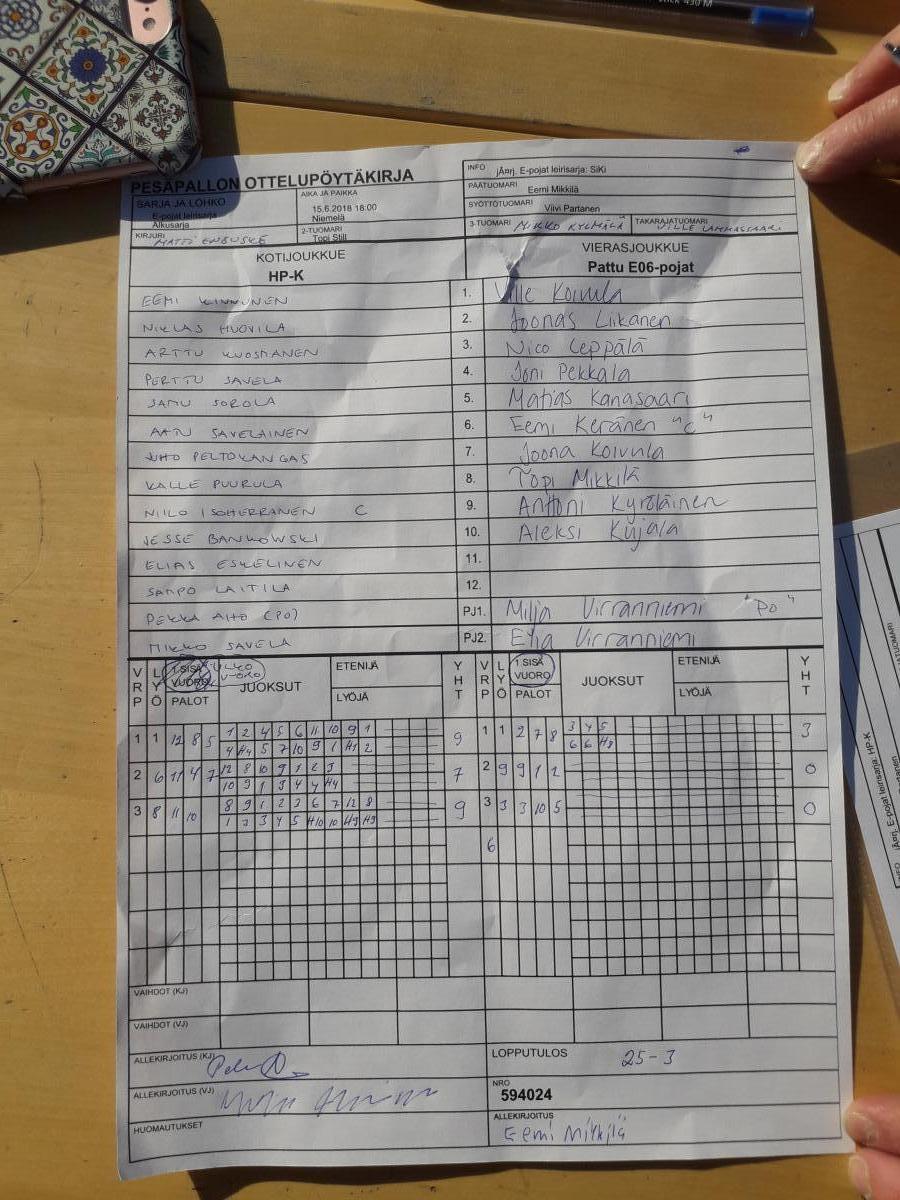 PESÄPALLON OTTELUPÖYTÄKIRJA
INFO jÄnrj. E-pojat leirisarja: SiKi
PÄÄTUOMARI Eemi Mikkilä
SARJA JA LOHKO E-pojat leirisarja Alkusarja
AIKA JA PAIKKA 15.6.2018 18:00 Niemelä
SYÖTTÖTUOMARI Viivi Partanen
KIRJURI MATTI ENBUSKE
2-TUOMARI Topi Still
3-TUOMARI MIKKO KYLMÄLÄ
TAKARAJATUOMARI VILLE LAMMASSAARI
KOTIJOUKKUE
HP-K
VIERASJOUKKUE
Pattu E06-pojat
EEMI KINNUNEN 1. Ville Koivula
NIKLAS HUOVILA 2. Joonas Liikanen
ARTTU KUOSMANEN 3. Nico Leppälä
PERTTU SAVELA 4. Joni Pekkala
SAMU SOROLA 5. Matias Kanasaari
AATU SAVELAINEN 6. Eemi Keränen "C"
JUHO PELTOKANGAS 7. Joona Koivula
KALLE PUURULA 8. Topi Mikkilä
NIILO ISOHERRANEN C 9. Anttoni Kyröläinen
JESSE BANKOWSKI 10. Aleksi Kujala
ELIAS ESKELINEN 11.
SAMPO LAITILA 12.
PEKKA AHO (PO) PJ1. Milja Virranniemi "PO"
MIKKO SAVELA PJ2. Elia Virranniemi
VRP LYÖ 1.SISÄ VUORO ULKO VUORO PALOT JUOKSUT ETENIJÄ LYÖJÄ YHT VRP LYÖ 1.SISÄ VUORO PALOT JUOKSUT ETENIJÄ LYÖJÄ YHT
1 1 12 8 5 1 2 4 5 6 11 10 9 1 9 1 1 2 7 8 3 4 5 3
4 H4 5 7 10 9 1 H1 2 6 6 H8
2 6 11 4 7 12 8 10 9 1 2 3 7 2 9 9 1 2 0
10 9 1 3 4 4 H4
3 8 11 10 8 9 1 2 3 6 7 12 8 9 3 3 3 10 5 0
1 2 3 4 5 H10 10 H9 H9
6
VAIHDOT (KJ)
VAIHDOT (VJ)
ALLEKIRJOITUS (KJ)
LOPPUTULOS 25-3
ALLEKIRJOITUS (VJ)
NRO
594024
HUOMAUTUKSET
ALLEKIRJOITUS Eemi Mikkilä
INFO jÄnrj. E-pojat leirisarja: HP-K